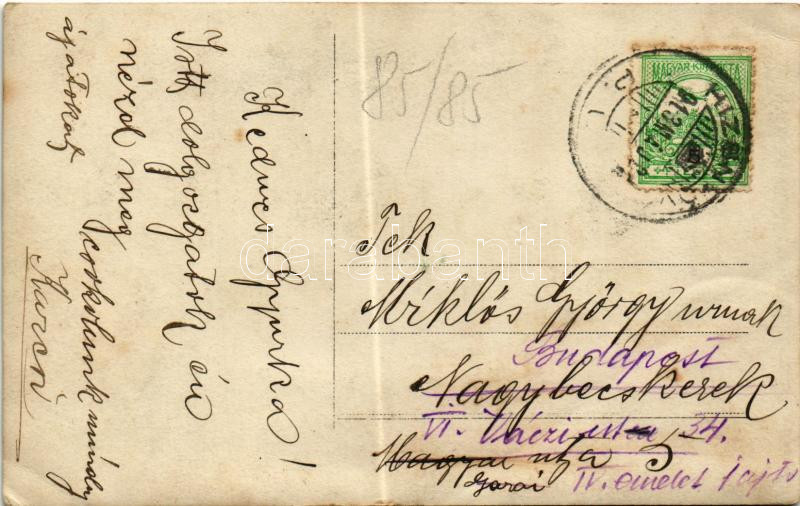 Kedves Gyurka!
Itt dolgozgatok én
nézd meg
csokolunk mindny
ájatokat
Karcsi
85/85
MAGYAR KIR. POSTA
Tek
Miklós György urnak
Budapest
Nagybecskerek
VI. Váczi utca 34.
Magyar utca 5
Garai
IV. emelet 1 ajtó
darabanth